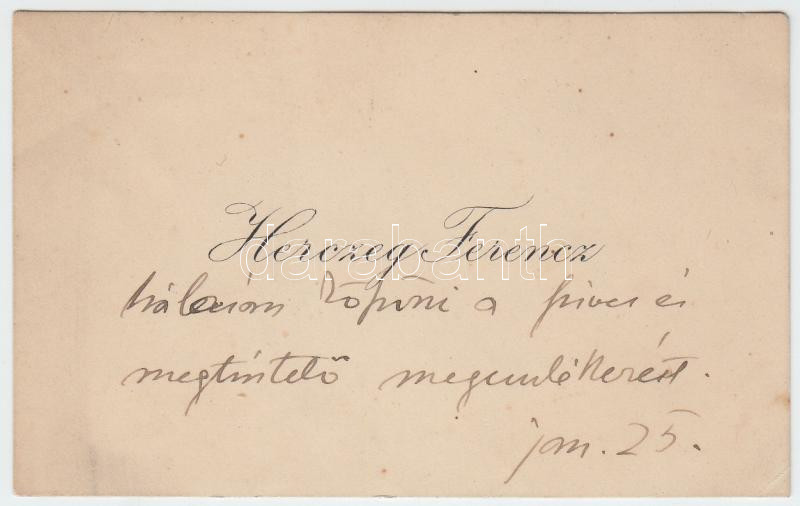 Herczeg Ferencz
darabanth.com
hálásan köszöni a szives és
megtisztelő megemlékezést.
jan. 25.